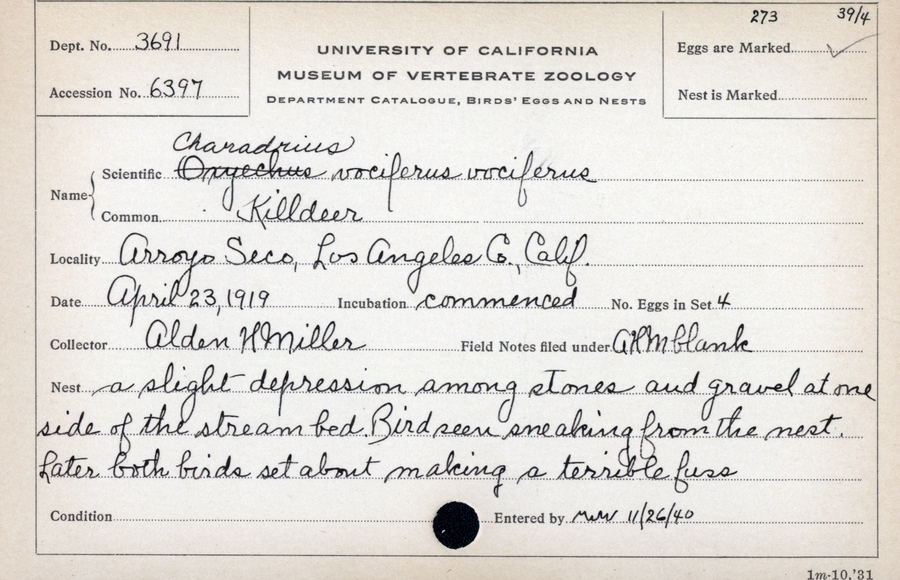 273 39/4
Dept. No. 3691
UNIVERSITY OF CALIFORNIA
Eggs are Marked ✓
MUSEUM OF VERTEBRATE ZOOLOGY
Accession No. 6397
DEPARTMENT CATALOGUE, BIRDS' EGGS AND NESTS
Nest is Marked
Charadrius
Name { Scientific Oxyechus vociferus vociferus
Common Killdeer
Locality Arroyo Seco, Los Angeles Co., Calif.
Date April 23, 1919 Incubation commenced No. Eggs in Set 4
Collector Alden H Miller Field Notes filed under AHM blank
Nest a slight depression among stones and gravel at one
side of the stream bed. Bird seen sneaking from the nest.
Later both birds set about making a terrible fuss
Condition Entered by 11/26/40
1m-10,'31